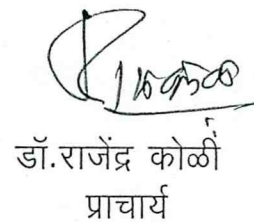 डॉ.राजेंद्र कोळी
प्राचार्य